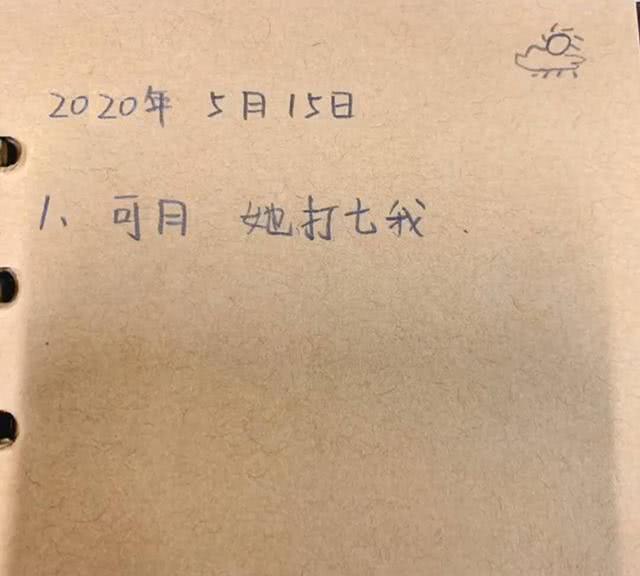 2020年 5月15日
1、可月 她打七我.